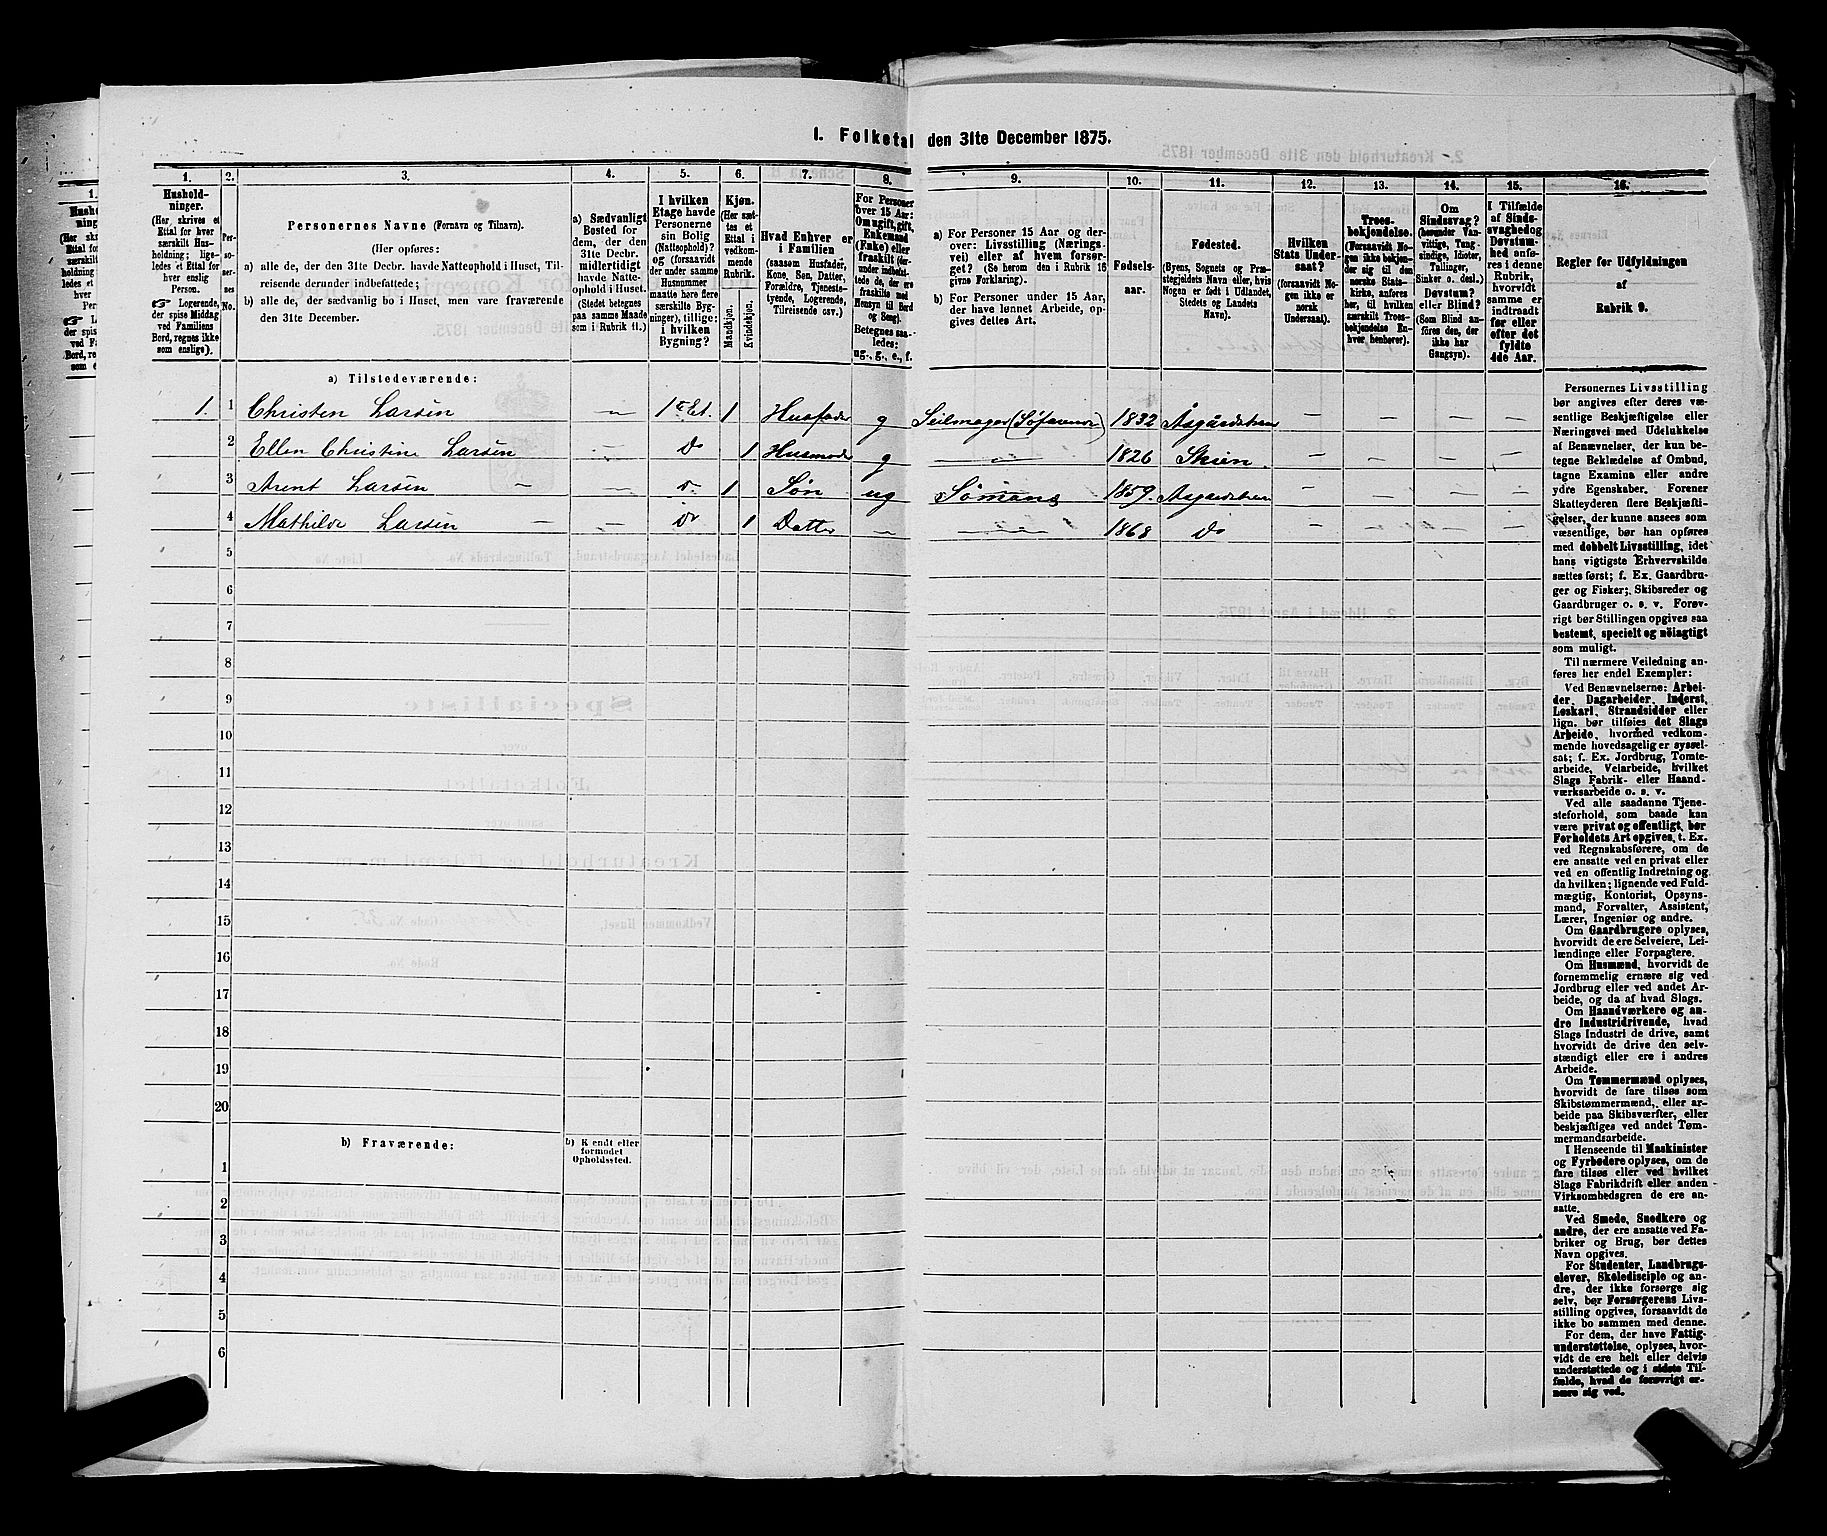 1. Folketal den 31te December 1875.
1. 2. 3. 4. 5. 6. 7. 8. 9. 10. 11. 12. 13. 14. 15. 16.
Hushold-
ninger.
(Her, skrives et
Ettal for hver
særskilt Hus-
holdning; lige-
ledes et Ettal for
enslig
Person.
☞ Logerende,
der spise Middag
ved Familiens
Bord, regnes ikke
som enslige).
Per-
so-
ner-
nes
No.
Personernes Navne (Fornavn og Tilnavn).
(Her opføres:
a) alle de, der den 31te Decbr. havde Natteophold i Huset, Til-
reisende derunder indbefattede;
b) alle de, der sædvanlig bo i Huset, men vare fraværende
den 31te December.
a) Sædvanligt
Bosted for
dem, der den
31te Decbr.
midlertidigt
havde Natte-
ophold i Huset.
(Stedet betegnes
paa samme Maade
som i Rubrik 11.)
I hvilken
Etage havde
Personerne
sin Bolig
(Natteophold)?
og (forsaavidt
der under samme
Husnummer
maatte høre flere
særskilte Byg-
ninger), tillige:
i hvilken
Bygning?
Kjøn.
(Her sæt-
tes et
Ettal i
vedkom-
mende
Rubrik.
Mandkjøn.
Kvindekjøn.
Hvad Enhver er
i Familien
(saasom Husfader,
Kone, Søn, Datter,
Forældre, Tjeneste-
tyende, Logerende,
Tilreisende osv.)
For Personer
over 15 Aar:
Om ugift, gift,
Enkemand
(Enke) eller
fraskilt (der-
under indbefat-
tede de, der ere
fraskilte med
Hensyn til Bord
og Seng).
Betegnes saa-
ledes:
ug., g., e., f.
a) For Personer 15 Aar og der-
over: Livsstilling (Nærings-
vei) eller af hvem forsør-
get? (Se herom den i Rubrik 16
givne Forklaring).
b) For Personer under 15 Aar,
der have lønnet Arbeide, op-
gives dettes Art.
Fødsels-
aar.
Fødested.
(Byens, Sognets og Præ-
stegjeldets Navn eller, hvis
Nogen er født i Udlandet,
Stedets og Landets
Navn).
Hvilken
Stats Under-
saat?
(forsaavidt No-
gen ikke er
norsk
Undersaat).
Troes-
bekjendelse.
(Forsaavidt No-
gen ikke bekjen-
der sig til den
norske Stats-
kirke, anføres
her, til hvilken
særskilt Troes-
bekjendelse En-
hver henhører).
Om
Sindssvag?
(herunder Van-
vittige, Tung-
sindige, Idioter,
Tullinger,
Sinker o. desl.)
Døvstum?
eller Blind?
(Som Blind an-
føres den, der
ikke har
Gangsyn).
I Tilfælde
af Sinds-
svaghed og
Døvstum-
hed anfø-
res i denne
Rubrik,
hvorvidt
samme er
indtraadt
før eller
efter det
fyldte
4de Aar.
Regler for Udfyldningen
af
Rubrik 9.
a) Tilstedeværende:
1. 1 Christen Larsen — 1ste Et. 1 Husfader g Seilmager 1832 Åsgårdstran — — — —
2 Ellen Christine Larsen — do 1 Husmoder g — 1826 Skien — — — —
3 Arent Larsen — do 1 Søn ug Sømand 1859. Aasgårdstran — — — —
4 Mathilde Larsen — — do 1 Datter — — 1868 do — — — —
5
6
7
8
9
10
11
12
13
14
15
16
17
18
19
20
b) Fraværende:
b) Kjendt eller
formodet
Opholdssted.
1
2
3
4
5
6
Personernes Livsstilling
bør angives efter deres væ-
sentlige Beskjæftigelse eller
Næringsvei med Udelukkelse
af Benævnelser, der kun be-
tegne Beklædelse af Ombud,
tagne Examina eller andre
ydre Egenskaber. Forener
Skatteyderen flere Beskjæfti-
gelser, der kunne ansees som
væsentlige, bør han opføres
med dobbelt Livsstilling, idet
hans vigtigste Erhvervskilde
sættes først; f. Ex. Gaardbru-
ger og Fisker; Skibsreder og
Gaardbruger o. s. v. Forøv-
rigt bør Stillingen opgives saa
bestemt, specielt og nöiagtigt
som muligt.
Til nærmere Veiledning an-
føres her endel Exempler:
Ved Benævnelserne: Arbei-
der, Dagarbeider, Inderst,
Løskarl, Strandsidder eller
lign. bør tilføies det Slags
Arbeide, hvormed vedkom-
mende hovedsagelig er syssel-
sat; f. Ex. Jordbrug, Tomte-
arbeide, Veiarbeide, hvilket
Slags Fabrik- eller Haand-
værksarbeide o. s. v.
Ved alle saadanne Tjene-
steforhold, som baade kan
være privat og offentligt, bør
Forholdets Art opgives, t. Ex.
ved Regnskabsførere, om de
ere ansatte ved en privat eller
ved en offentlig Indretning og
da hvilken; lignende ved Fuld-
mægtig, Kontorist, Opsyns-
mand, Forvalter, Assistent,
Lærer, Ingeniør og andre.
Om Gaardbrugere oplyses,
hvorvidt de ere Selveiere, Lei-
lændinge eller Forpagtere.
Om Husmænd, hvorvidt de
fornemmelig ernære sig ved
Jordbrug eller ved andet Ar-
beide, og da af hvad Slags.
Om Haandværkere og an-
dre Industridrivende, hvad
Slags Industri de drive, samt
hvorvidt de drive den selv-
stændigt eller ere i andres
Arbeide.
Om Tømmermænd oplyses,
hvorvidt de fare tilsøs som
Skibstømmermænd, eller ar-
beide paa Skibsværfter, eller
beskjæftiges ved andet Tøm-
mermandsarbeide.
I Henseende til Maskinister
og Fyrbødere oplyses, om de
fare tilsøs eller ved hvilket
Slags Fabrikdrift eller anden
Virksomhedsgren de ere an-
satte.
Ved Smede, Snedkere og
andre, der ere ansatte ved Fa-
briker og Brug, bør dettes
Navn opgives.
For Studenter, Landbrugs-
elever, Skoledisciple og an-
dre, der ikke forsørge sig
selv, bør Forsørgerens Livs-
stilling opgives, forsaavidt de
ikke bo sammen med denne.
For dem, der have Fattig-
understøttelse, oplyses, hvor-
vidt de ere helt eller delvis
understøttede og i sidste Til-
fælde, hvad de forøvrigt er-
nære sig ved.